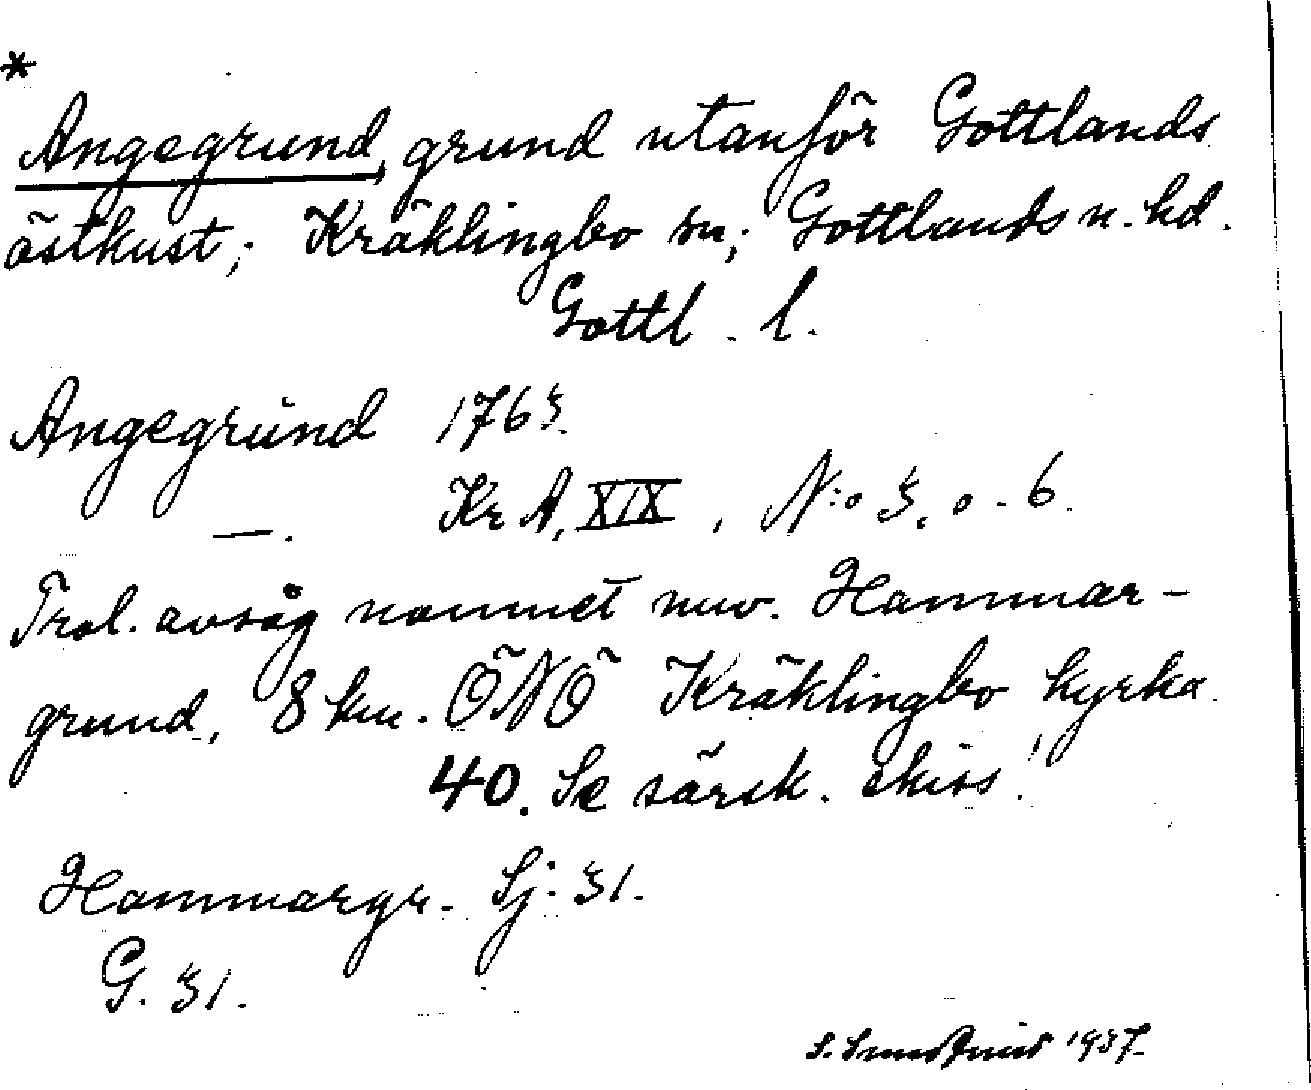 *
Angegrund, grund utanför Gottlands
östkust; Kräklingbo sn; Gottlands n. hd.
Gottl. l.
Angegrund 1763.
—. Kr A, XIX, N:o 3. o. 6.
Trol. avsåg namnet nuv. Hammar-
grund, 8 km. ÖNÖ Kräklingbo kyrka.
40. Se särsk. skiss!
Hammargr. Sj. 31.
G. 31.
S. 1937.